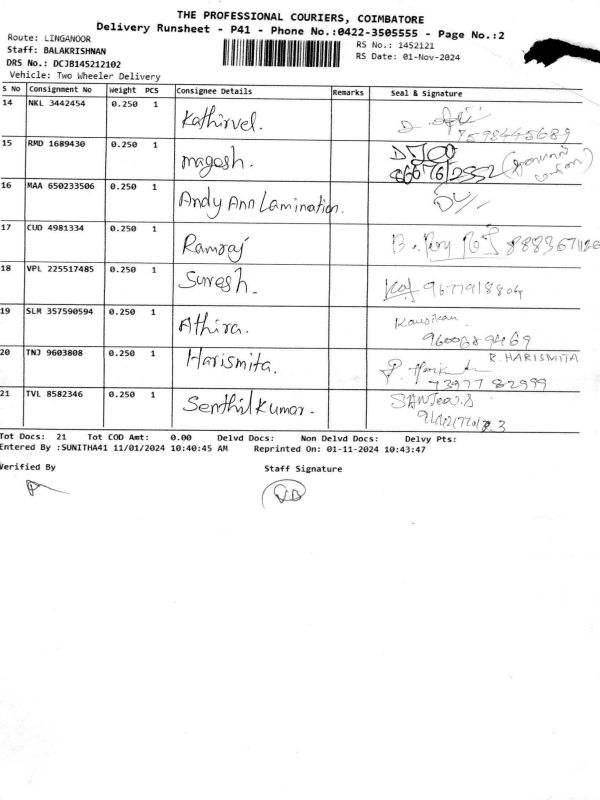 THE PROFESSIONAL COURIERS, COIMBATORE
Delivery Runsheet - P41 - Phone No.:0422-3505555 - Page No.:2
Route: LINGANOOR
RS No.: 1452121
Staff: BALAKRISHNAN
RS Date: 01-Nov-2024
DRS No.: DCJB145212102
Vehicle: Two Wheeler Delivery
S No Consignment No Weight PCS Consignee Details Remarks Seal & Signature
14 NKL 3442454 0.250 1 Kathirvel.
7598445689
15 RMD 1689430 0.250 1 magesh.
16 MAA 650233506 0.250 1 Andy Ann Lamination.
17 CUD 4981334 0.250 1 Ramraj
18 VPL 225517485 0.250 1 Suresh. 9677918804
19 SLM 357590594 0.250 1 Athira. Kausikan
9600689469
20 TNJ 9603808 0.250 1 Harismita. R.HARISMITA
73977 82999
21 TVL 8582346 0.250 1 Senthil Kumar. SANJeev.S
Tot Docs: 21 Tot COD Amt: 0.00 Delvd Docs: Non Delvd Docs: Delvy Pts:
Entered By :SUNITHA41 11/01/2024 10:40:45 AM Reprinted On: 01-11-2024 10:43:47
Verified By Staff Signature